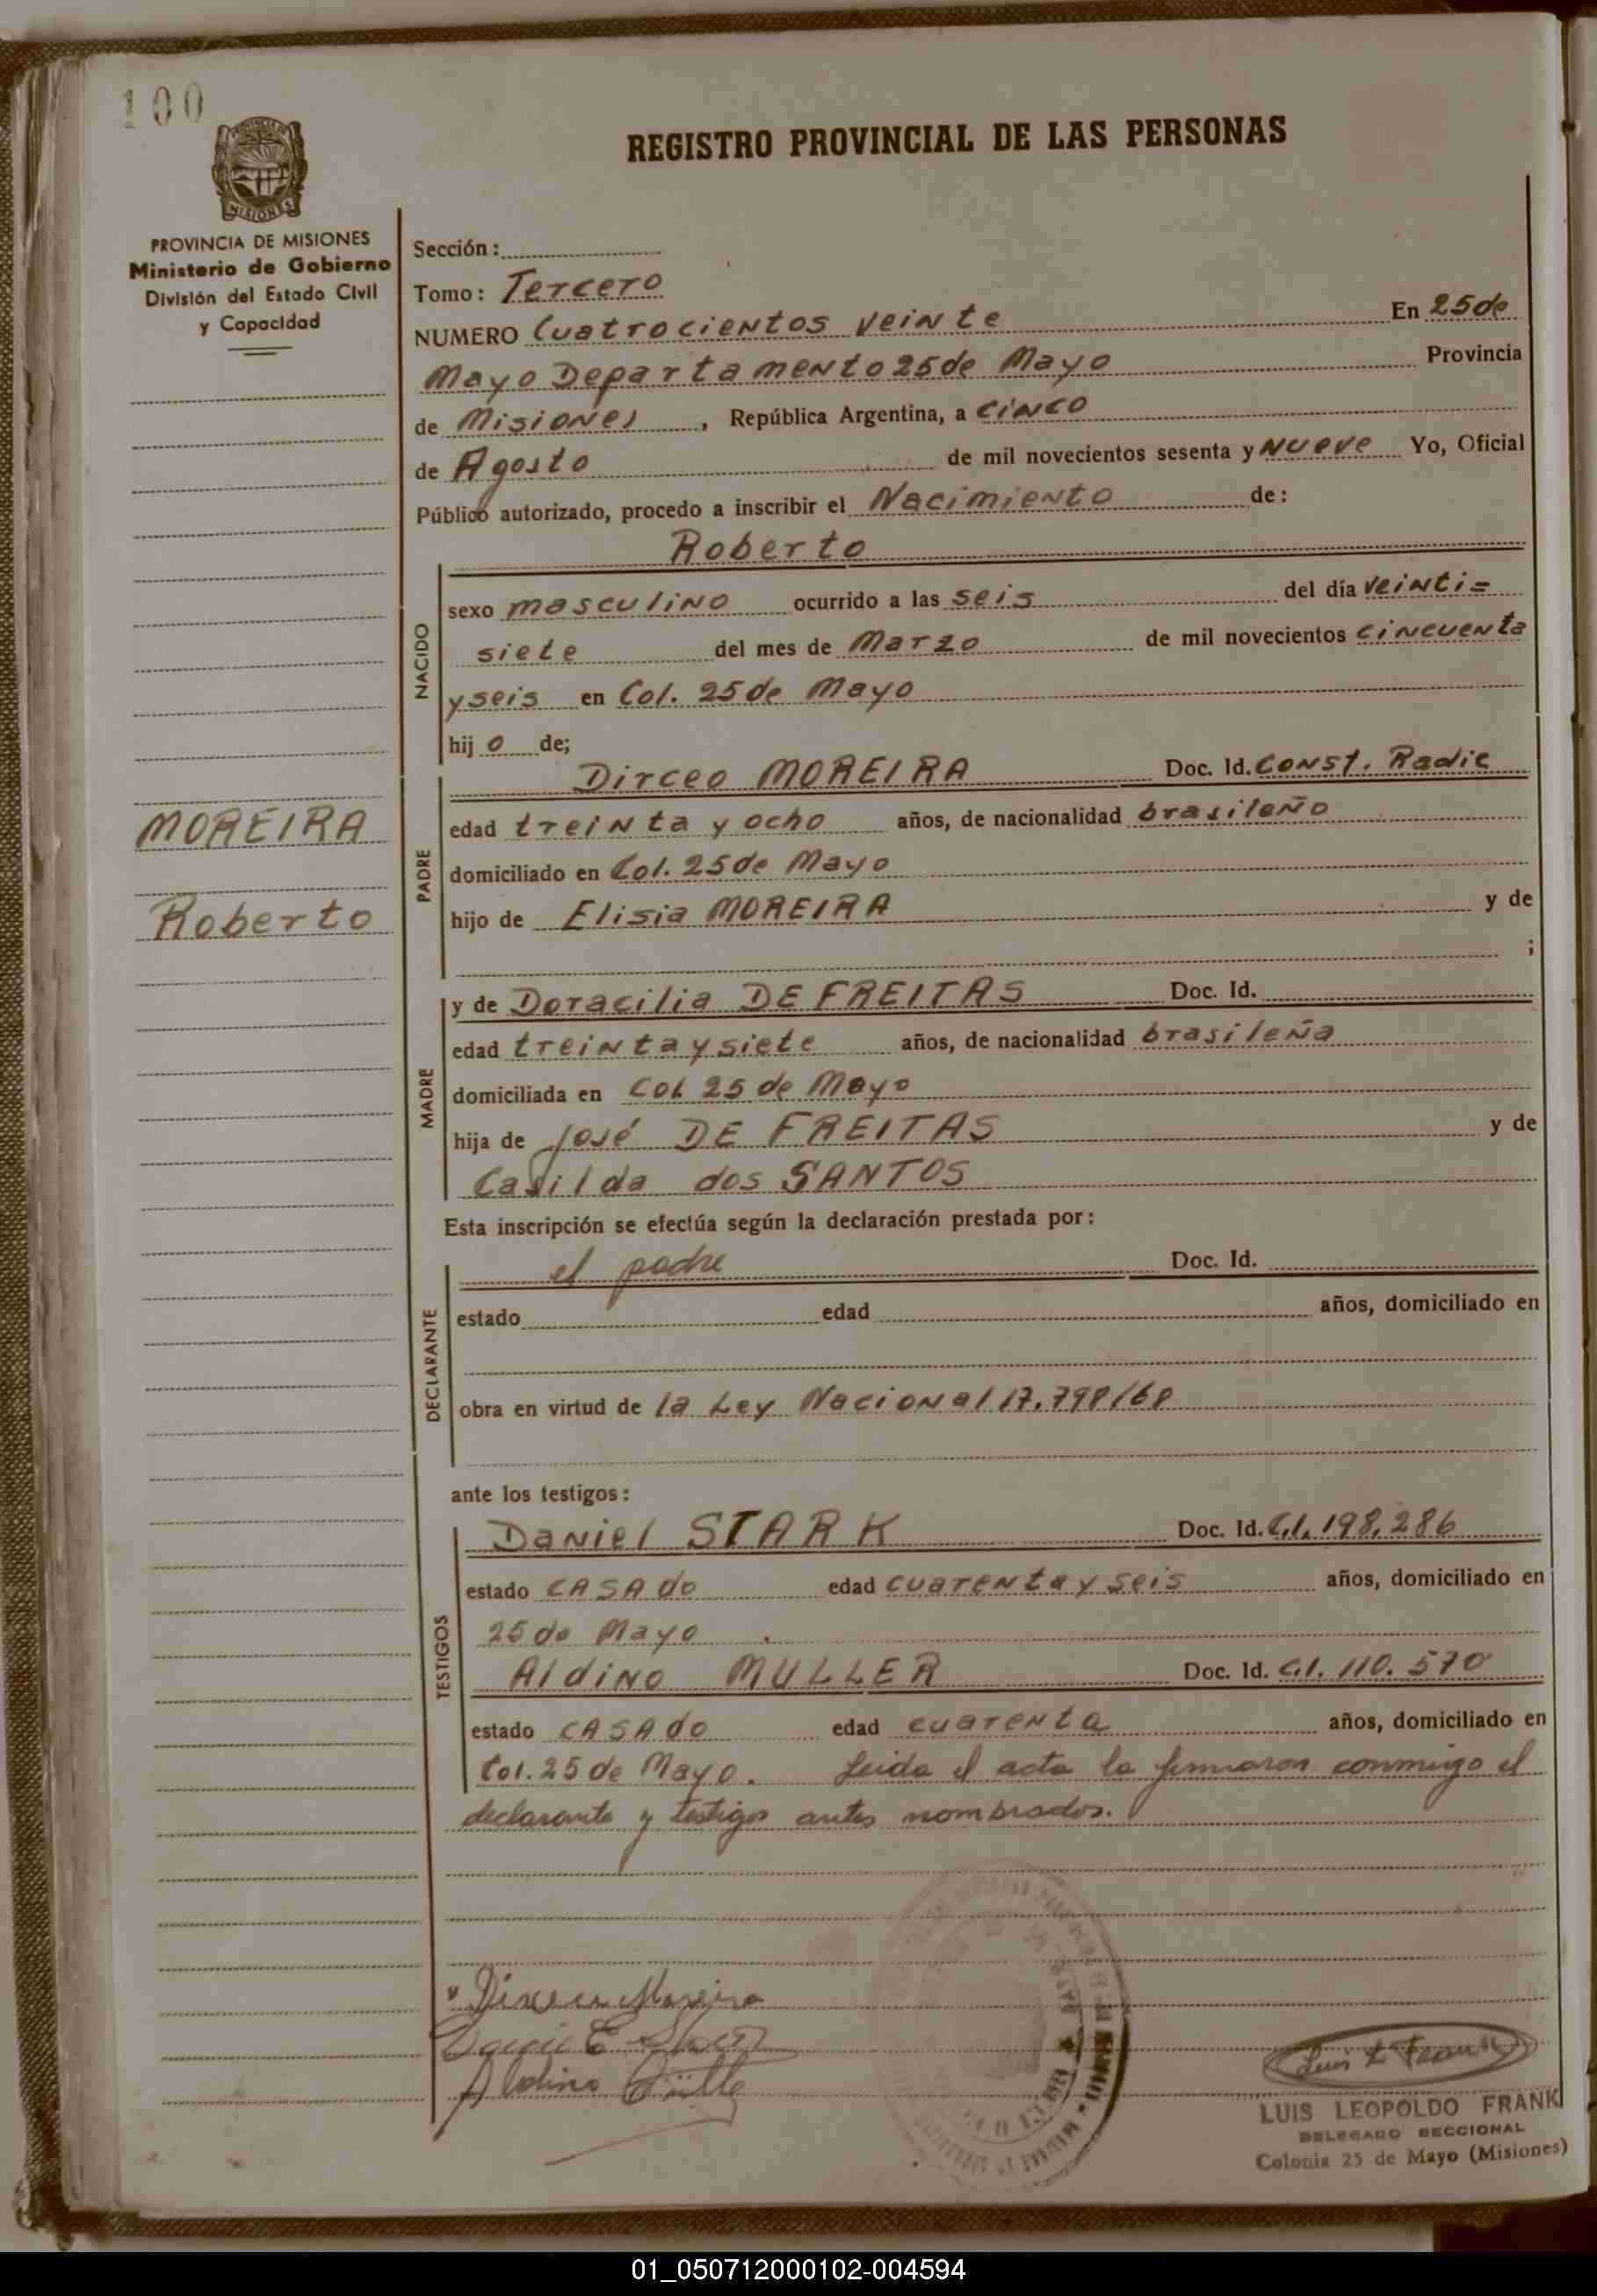 100
REGISTRO PROVINCIAL DE LAS PERSONAS
PROVINCIA DE MISIONES
Ministerio de Gobierno
División del Estado Civil
y Capacidad
Sección:
Tomo: Tercero
NUMERO Cuatrocientos veinte En 25 de
Mayo Departamento 25 de Mayo Provincia
de Misiones, República Argentina, a cinco
de Agosto de mil novecientos sesenta y nueve Yo, Oficial
Público autorizado, procedo a inscribir el Nacimiento de:
Roberto
NACIDO
sexo masculino ocurrido a las seis del día veinti=
siete del mes de Marzo de mil novecientos cincuenta
y seis en Col. 25 de Mayo
hij o de;
PADRE
Dirceo MOREIRA Doc. Id. Const. Radic
edad treinta y ocho años, de nacionalidad brasileño
domiciliado en Col. 25 de Mayo
hijo de Elisia MOREIRA y de
;
MOREIRA
Roberto
MADRE
y de Doracilia DE FREITAS Doc. Id.
edad treinta y siete años, de nacionalidad brasileña
domiciliada en Col. 25 de Mayo
hija de José DE FREITAS y de
Casilda dos SANTOS
Esta inscripción se efectúa según la declaración prestada por:
DECLARANTE
el padre Doc. Id.
estado edad años, domiciliado en
obra en virtud de la Ley Nacional 17.798/68
ante los testigos:
TESTIGOS
Daniel STARK Doc. Id. C.I. 198.286
estado CASAdo edad cuarenta y seis años, domiciliado en
25 de Mayo
Aldino MULLER Doc. Id. C.I. 110.570
estado CASAdo edad cuarenta años, domiciliado en
Col. 25 de Mayo. Leida el acta la firmaron conmigo el
declarante y testigos antes nombrados.
Dirceu Moreira
Aldino Müller
Luis L Frank
LUIS LEOPOLDO FRANK
DELEGADO SECCIONAL
Colonia 25 de Mayo (Misiones)
01_050712000102-004594